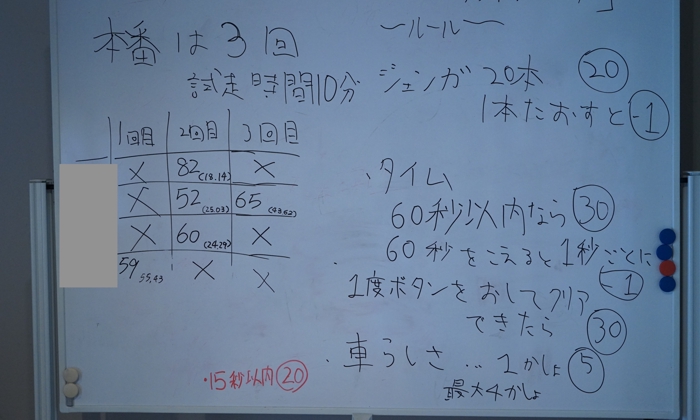 本番は3回
試走時間10分
1回目 2回目 3回目
× 82(18.14) ×
× 52(25.03) 65(43.62)
× 60(24.29) ×
59 55.43 × ×
・15秒以内 20
〜ルール〜
ジェンガ 20本 20
1本たおすと -1
・タイム
60秒以内なら 30
60秒をこえると1秒ごとに -1
1度ボタンをおしてクリア
できたら 30
・車らしさ…1かしょ 5
最大4かしょ